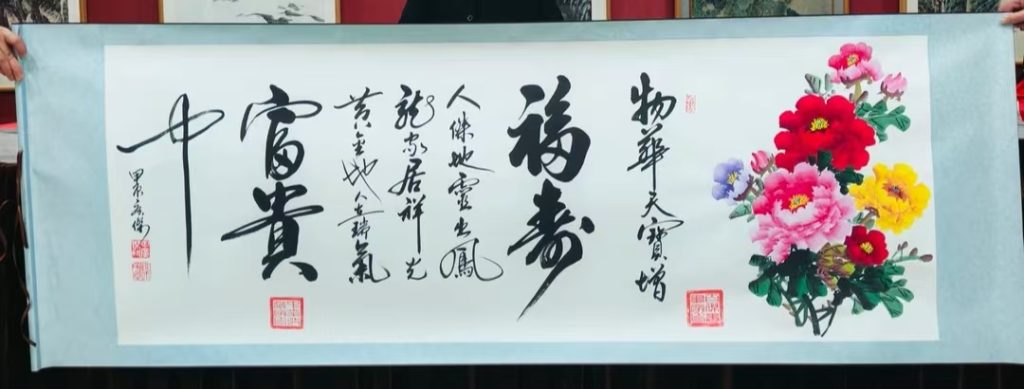 物華天寶增
福壽
人傑地靈出鳳
龍家居祥光
黃金地人喜瑞氣
富貴
中
甲辰